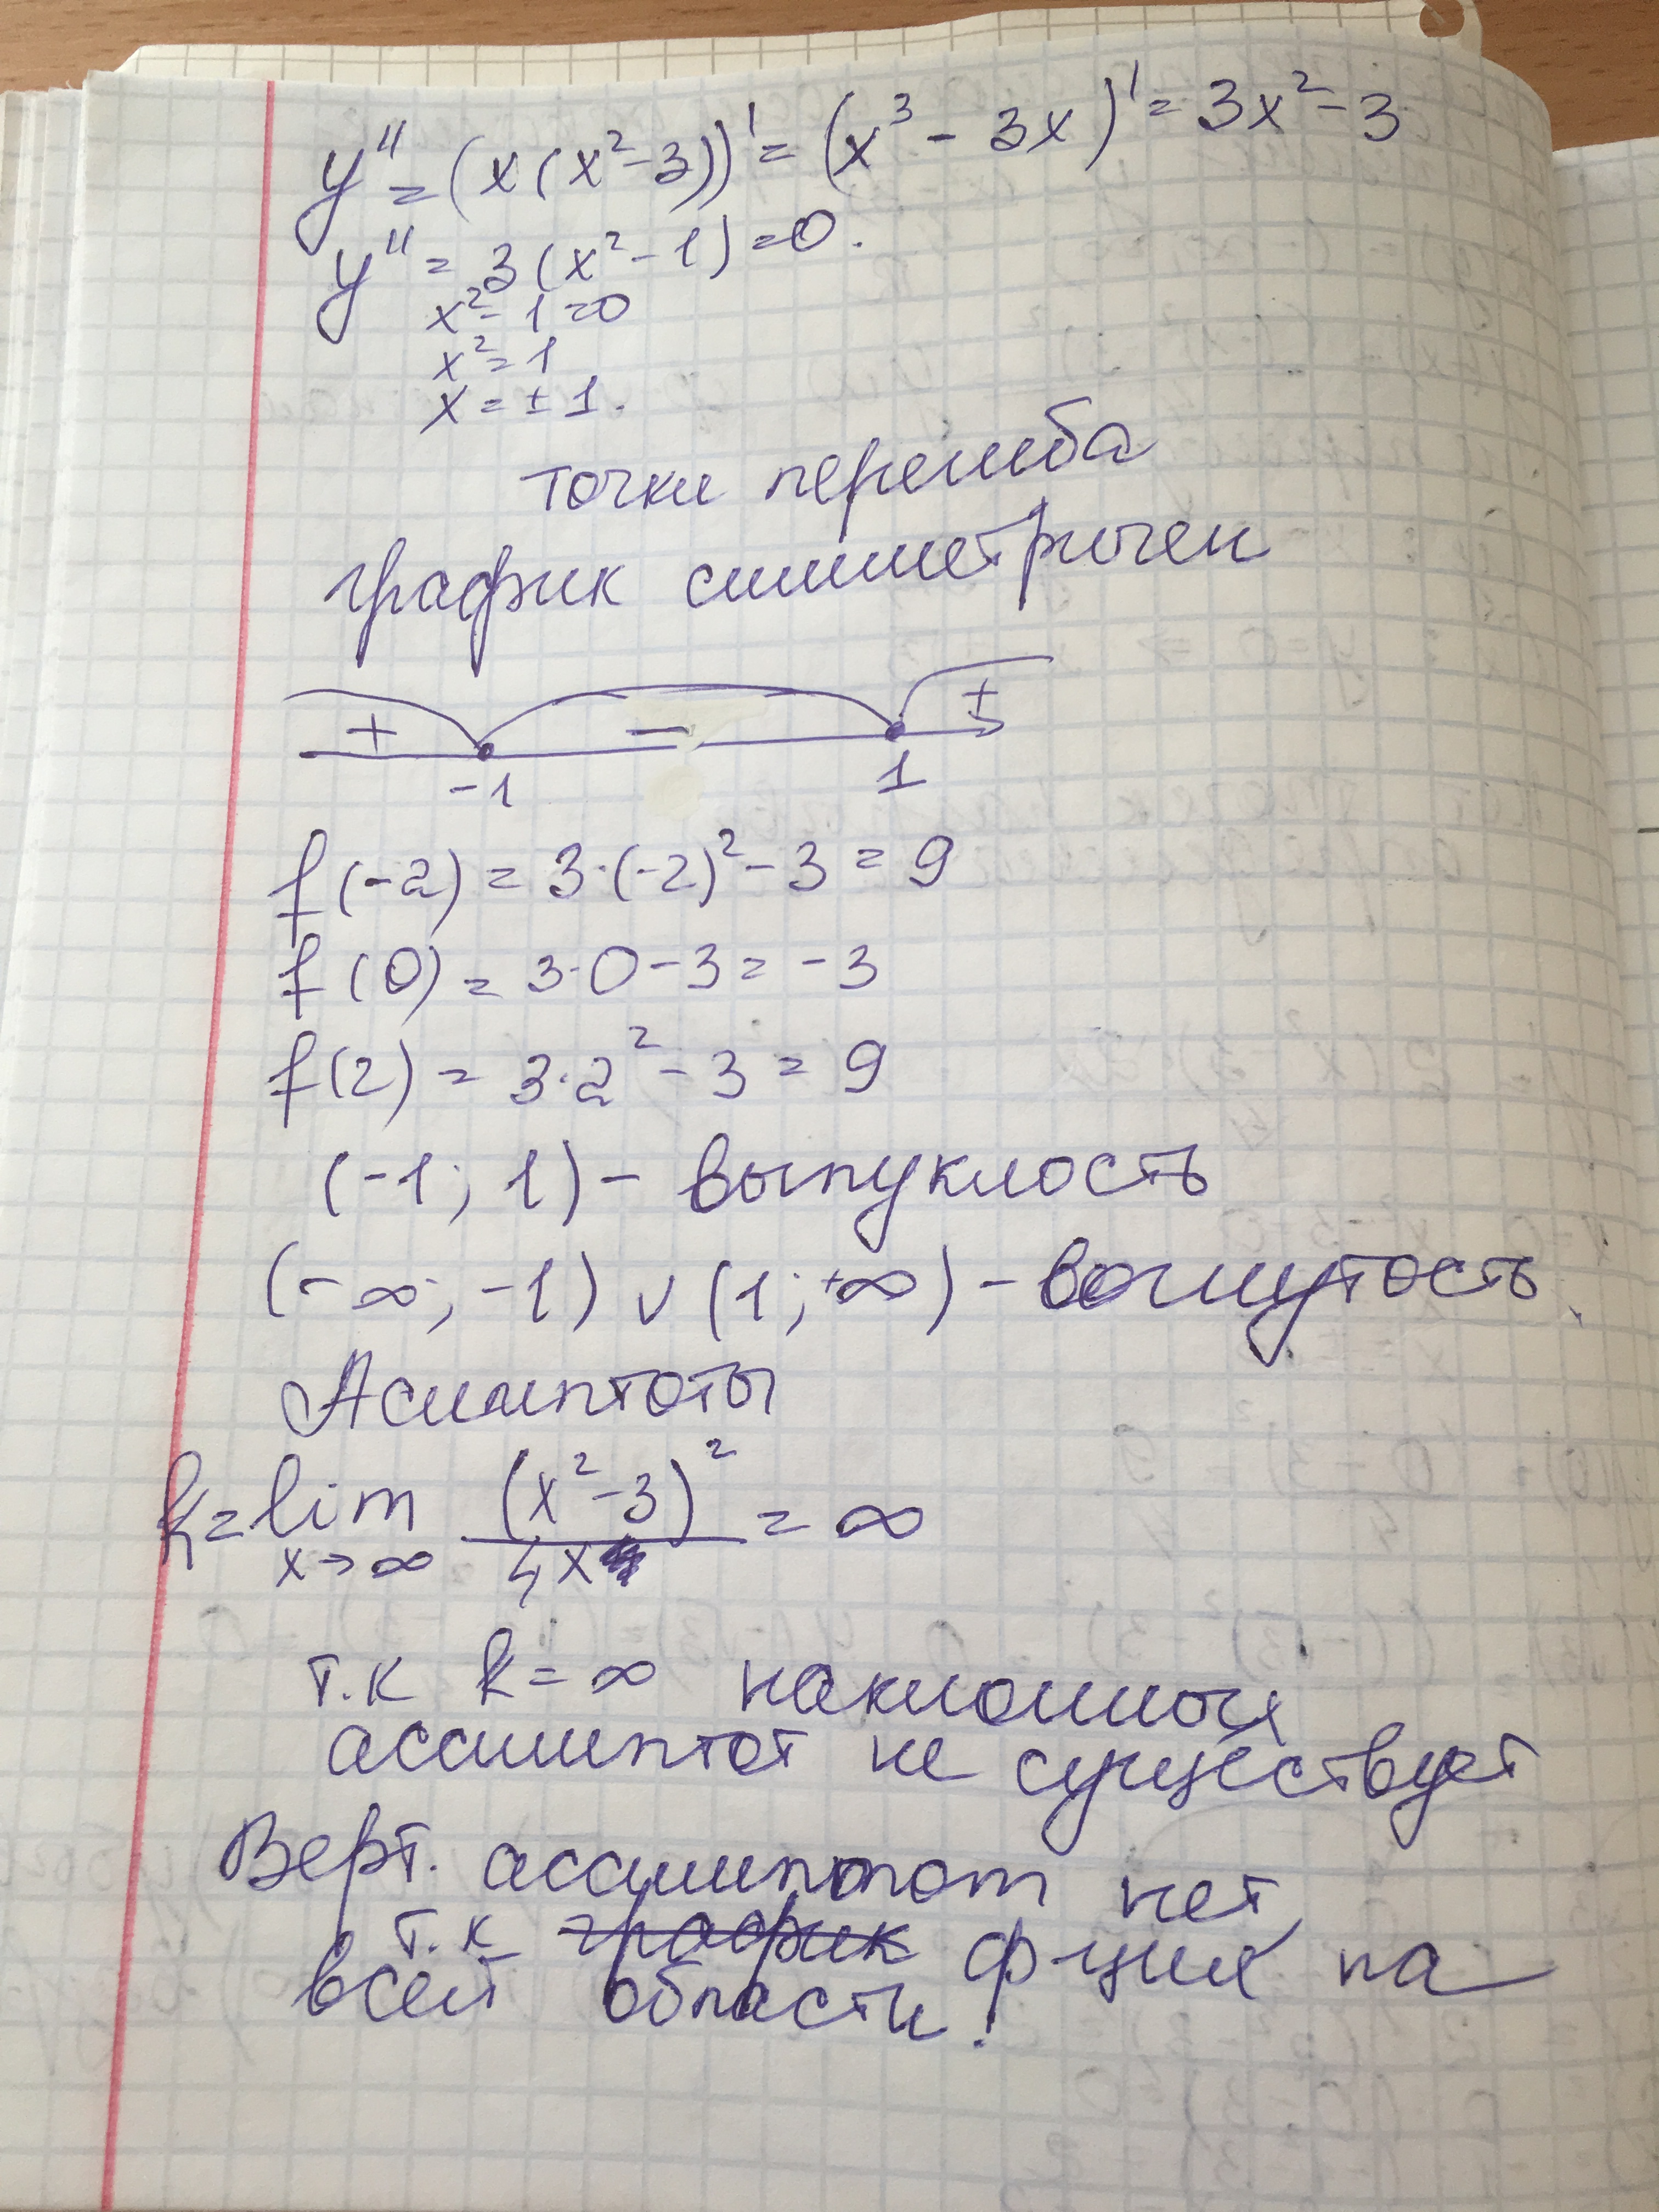 y'' = (x(x²-3))' = (x³ - 3x)' = 3x² - 3
y'' = 3(x² - 1) = 0.
x² - 1 = 0
x² = 1
x = ± 1.
точки перегиба
график симметричен
+ - +
-1 1
f(-2) = 3·(-2)² - 3 = 9
f(0) = 3·0 - 3 = -3
f(2) = 3·2² - 3 = 9
(-1; 1) - выпуклость
(-∞; -1) ∪ (1; +∞) - вогнутость
Асимптоты
k = lim x→∞ (x²-3)²/4x = ∞
т.к k = ∞ наклонной
ассимптот не существует
Верт. ассимптот нет
т.к график ф-ция на
всей области!